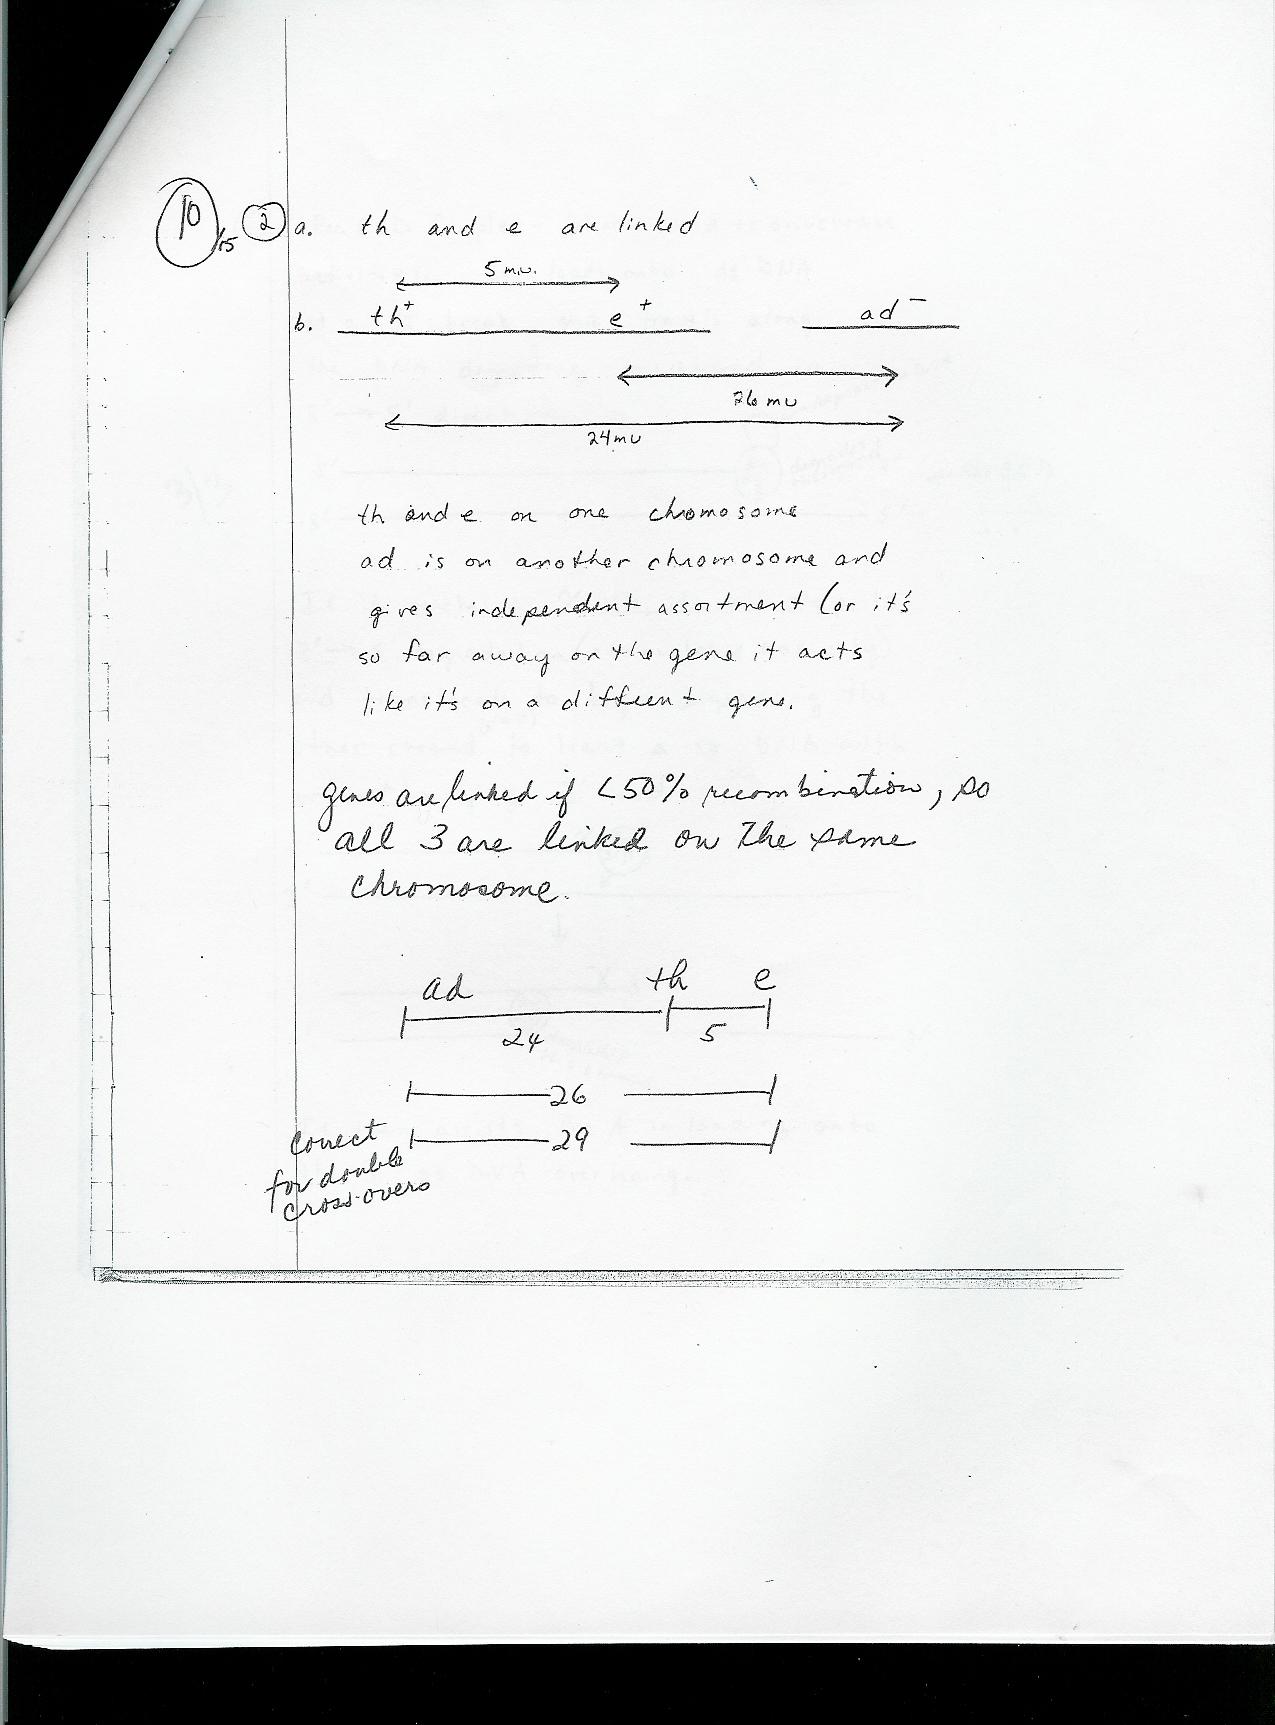 10/15 2 a. th and e are linked
5 m.u.
b. th+ e+ ad-
26 mu
24 mu
th and e on one chomosome
ad is on another chromosome and
gives independent assortment (or it's
so far away on the gene it acts
like it's on a diffeent gene.
genes are linked if <50% recombination, so
all 3 are linked on the same
chromosome.
ad th e
24 5
26
29
correct
for double
cross-overs